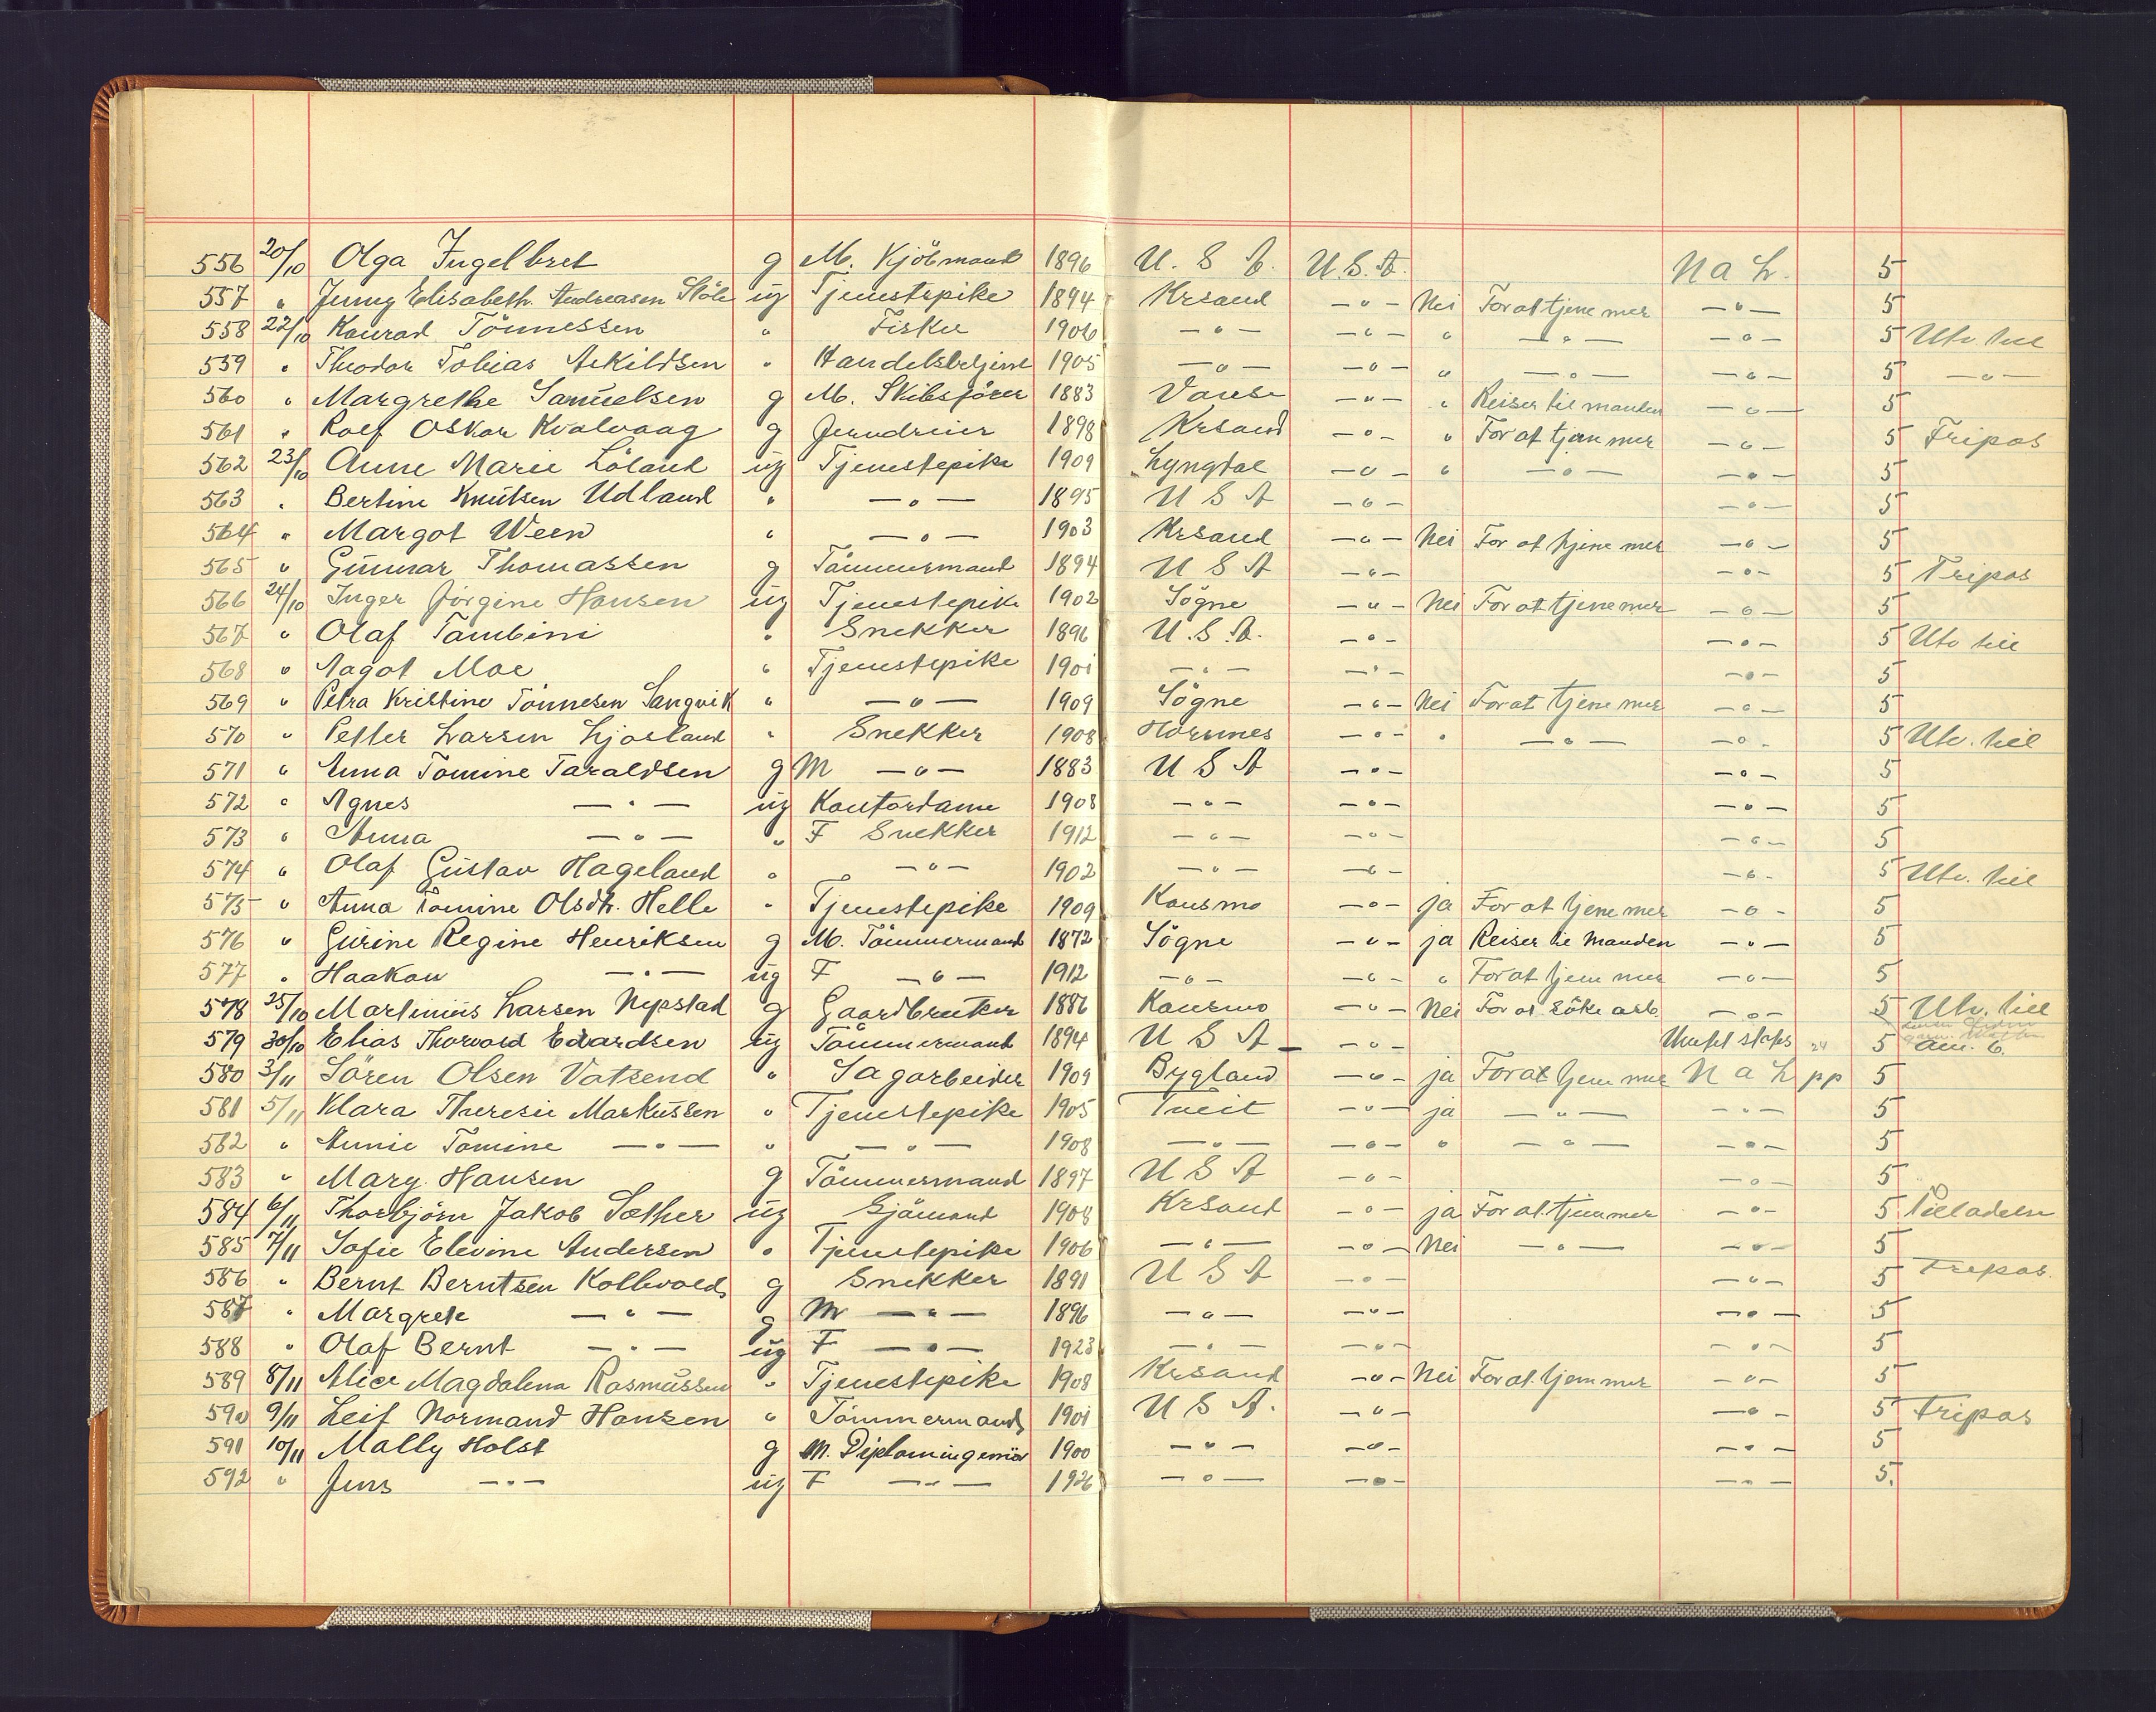 556 20/10 Olga Ingelbret g M. Kjöbmand 1896 U. S. A. U.S.A. N a L. 5
557 " Jenny Elisabeth Andreasen Stöle ug Tjenestepike 1894 Krsand —"— Nei For at tjene mer —"— 5
558 22/10 Konrad Tönnessen " Fisker 1906 —"— —"— " —"— —"— 5 Utv. till
559 " Theodor Tobias Aekildsen " Handelsbetjent 1905 —"— —"— " —"— —"— 5 —"—
560 " Margrethe Samuelsen g M. Skibsförer 1883 Vanse —"— " Reiser til manden —"— 5
561 " Rolf Oskar Kvalvaag g Jerndreier 1898 Krsand —"— " For at tjene mer —"— 5 Fripas
562 23/10 Anne Marie Löland ug Tjenestepike 1909 Lyngdal —"— " —"— —"— 5
563 " Bertine Knutsen Udland " —"— 1895 U S A —"— —"— 5
564 " Margot Ween " —"— 1903 Krsand —"— Nei For at tjene mer —"— 5
565 " Gunnar Thomassen g Tömmermand 1894 U S A —"— —"— 5 Fripas
566 24/10 Inger Jörgine Hansen ug Tjenestepike 1902 Sögne —"— Nei For at tjene mer —"— 5
567 " Olaf Tambini " Snekker 1896 U.S.A. —"— —"— 5 Utv till
568 " Aagot Moe " Tjenestepike 1901 —"— —"— —"— 5
569 " Petra Kristine Tönnesen Langvik " —"— 1909 Sögne —"— Nei For at tjene mer —"— 5
570 " Petter Larsen Ljosland " Snekker 1908 Hornnes —"— " —"— —"— 5 Utv. till
571 " Anna Tomine Taraldsen g M —"— 1883 U S A —"— —"— 5
572 " Agnes —"— ug Kontordame 1908 —"— —"— —"— 5
573 " Anna —"— " F Snekker 1912 —"— —"— —"— 5
574 " Olaf Gustav Hageland " —"— 1902 —"— —"— —"— 5 Utv. till
575 " Anna Tomine Olsdtr. Helle " Tjenestepike 1909 Konsmo —"— ja For at tjene mer —"— 5
576 " Gurine Regine Henriksen g M. Tömmermand 1872 Sögne —"— ja Reiser til Manden —"— 5
577 " Haakon —"— ug F —"— 1912 —"— —"— " For at tjene mer —"— 5
578 25/10 Martinius Larsen Nepstad g Gaardbruker 1886 Konsmo —"— Nei For at söke arb. —"— 5 Utv. till
579 30/10 Elias Thorvald Edvardsen ug Tömmermand 1894 U S A —"— 24 5 Am. C.
580 3/11 Sören Olsen Vatsend " Sagarbeider 1909 Bygland —"— ja For at tjene mer N a L pp 5
581 5/11 Klara Theresie Markussen " Tjenestepike 1905 Tveit —"— ja —"— —"— 5
582 " Annie Tomine —"— " —"— 1908 —"— —"— " —"— —"— 5
583 " Mary Hansen g Tömmermand 1897 U S A —"— —"— 5
584 6/11 Thorbjörn Jakob Sæther ug Sjömand 1908 Krsand —"— ja For at tjene mer —"— 5 Tilladelse
585 7/11 Sofie Elevine Andersen " Tjenestepike 1906 —"— —"— Nei —"— —"— 5
586 " Bernt Berntsen Kollevold g Snekker 1891 U S A —"— —"— 5 Fripas.
587 " Margrete —"— g M —"— 1896 —"— —"— —"— 5
588 " Olaf Bernt —"— ug F —"— 1923 —"— —"— —"— 5
589 8/11 Alice Magdalena Rasmussen " Tjenestepike 1908 Krsand —"— Nei For at tjene mer —"— 5
590 9/11 Leif Normand Hansen " Tömmermand 1901 U S A. —"— —"— 5 Fripas
591 10/11 Mally Holst g M. Diplomingeniör 1900 —"— —"— —"— 5
592 " Jens —"— ug F —"— 1926 —"— —"— —"— 5.